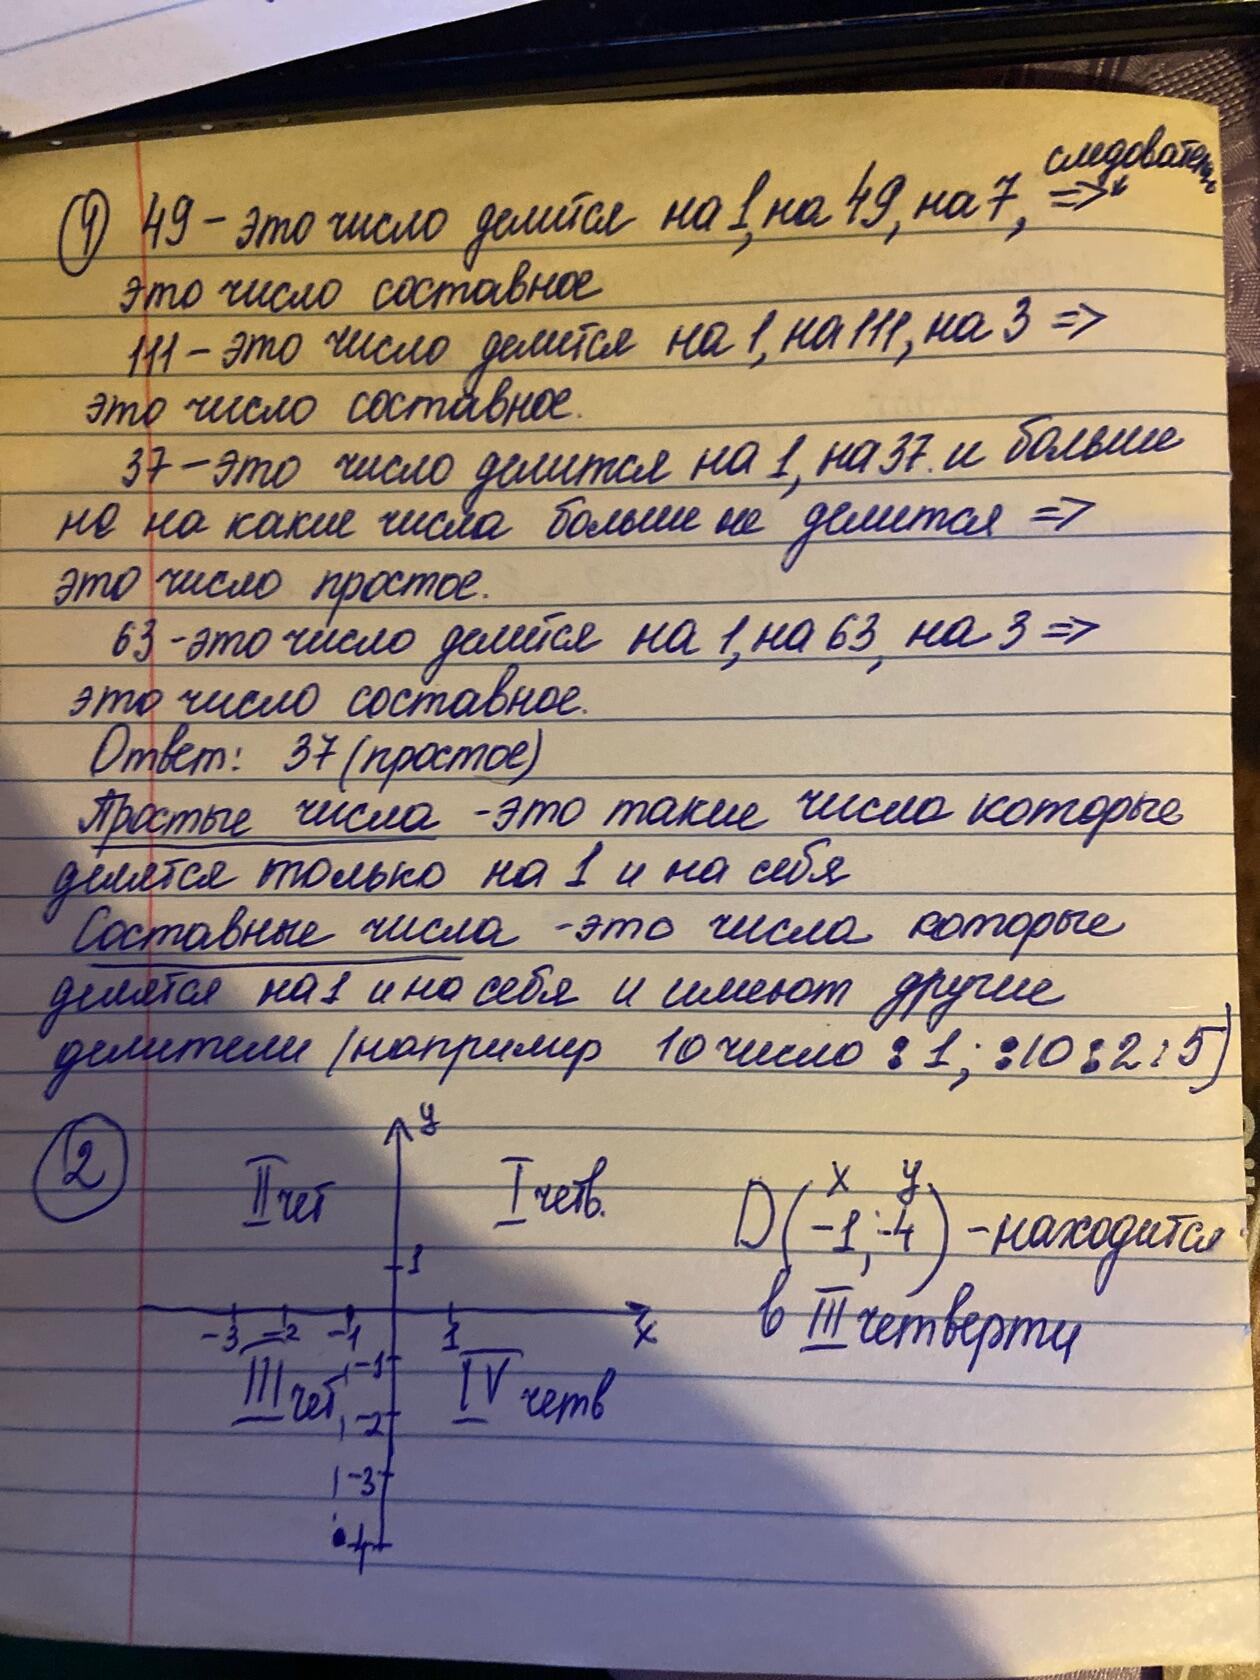 следовательно
① 49 – это число делится на 1, на 49, на 7, =>
это число составное
111 – это число делится на 1, на 111, на 3 =>
это число составное.
37 – это число делится на 1, на 37. и больше
не на какие числа больше не делится =>
это число простое.
63 - это число делится на 1, на 63, на 3 =>
это число составное.
Ответ: 37 (простое)
Простые числа - это такие числа которые
делятся только на 1 и на себя
Составные числа - это числа которые
делятся на 1 и на себя и имеют другие
делители (например 10 число : 1; :10 :2 :5)
② y
II чет I четв. x y
D(-1; -4) - находится
1
-3 -2 -1 1 x в III четверти
-1
III чет IV четв
-2
-3
-4